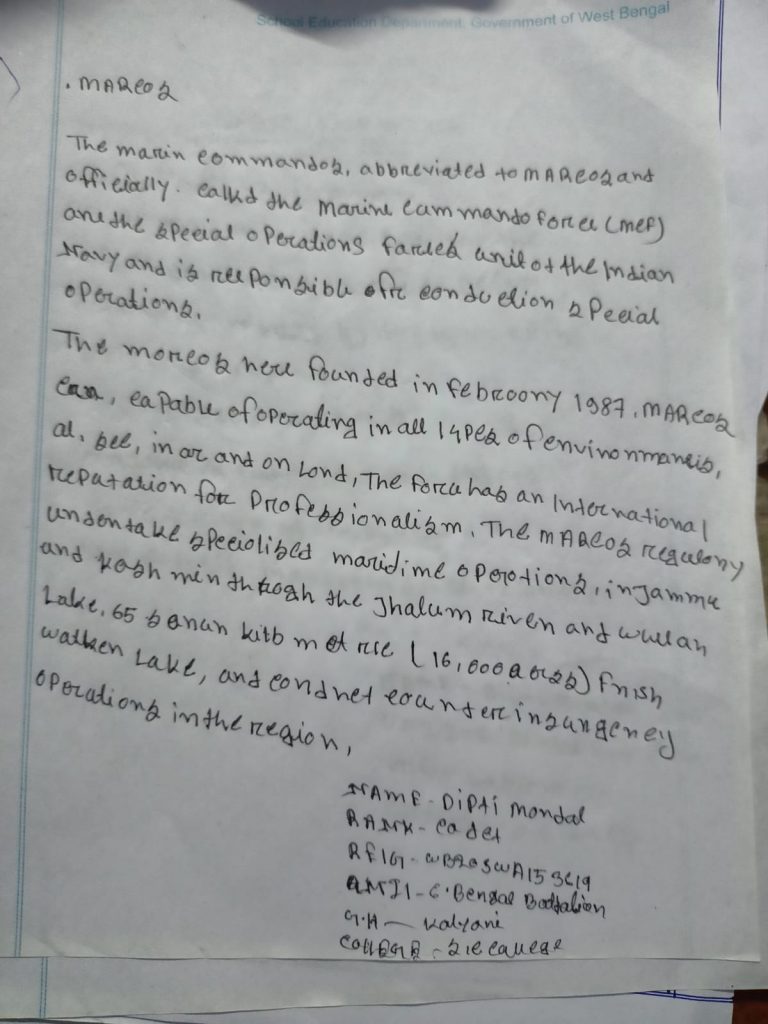 School Education Department, Government of West Bengal
. MARCOS
The marin commandos, abbreviated to MARCOS and
officially. called the Marine Cammando force (mcf)
are the special operations farced unit of the Indian
Navy and is responsible ofr conduction special
operations.
The morcos here founded in febroony 1987. MARCOS
can, capable of operating in all 14pes of environmants,
al. see, in ar and on Lond, The force has an International
reputation for professionalism. The MARCOS regulony
undentake specialised maridime operotions, in Jammu
and kash min through the Jhalum riven and wullan
Lake, 65 sanan kitb met rse (16,000 acrss) frnish
watken Lake, and condnet counter insungency
operations in the region,
NAME - Dipti Mondal
RANK - Cadet
UNIT - 6 Bengal Battalion
G.H - Kalyani